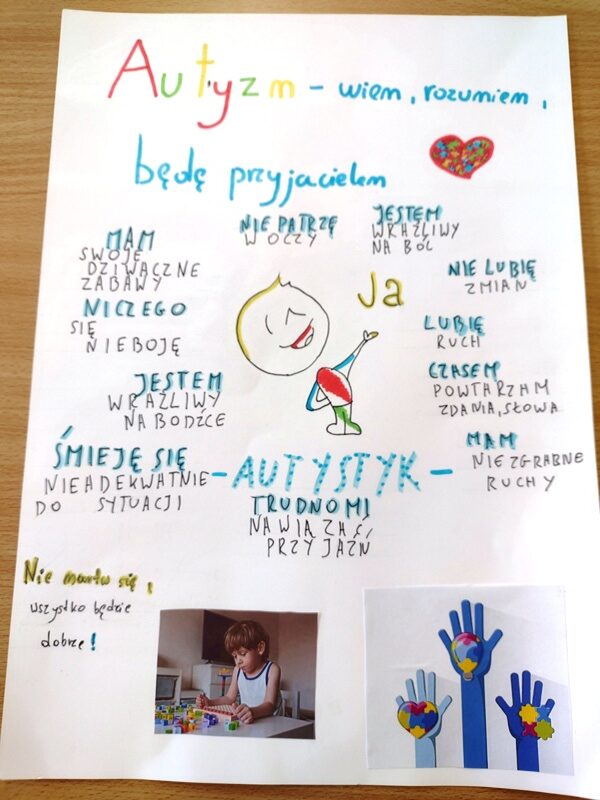 Autyzm - wiem, rozumiem,
będę przyjacielem
MAM
SWOJE
DZIWACZNE
ZABAWY
NIE PATRZĘ
W OCZY
JESTEM
WRAŻLIWY
NA BÓL
NIE LUBIĘ
ZMIAN
NICZEGO
SIĘ
NIEBOJĘ
Ja
LUBIĘ
RUCH
JESTEM
WRAŻLIWY
NA BODŹCE
CZASEM
POWTARZAM
ZDANIA, SŁOWA
ŚMIEJĘ SIĘ
NIEADEKWATNIE
DO SYTUACJI
-AUTYSTYK-
MAM
NIEZGRABNE
RUCHY
TRUDNO MI
NAWIĄZAĆ
PRZYJAŹŃ
Nie martw się,
wszystko będzie
dobrze!